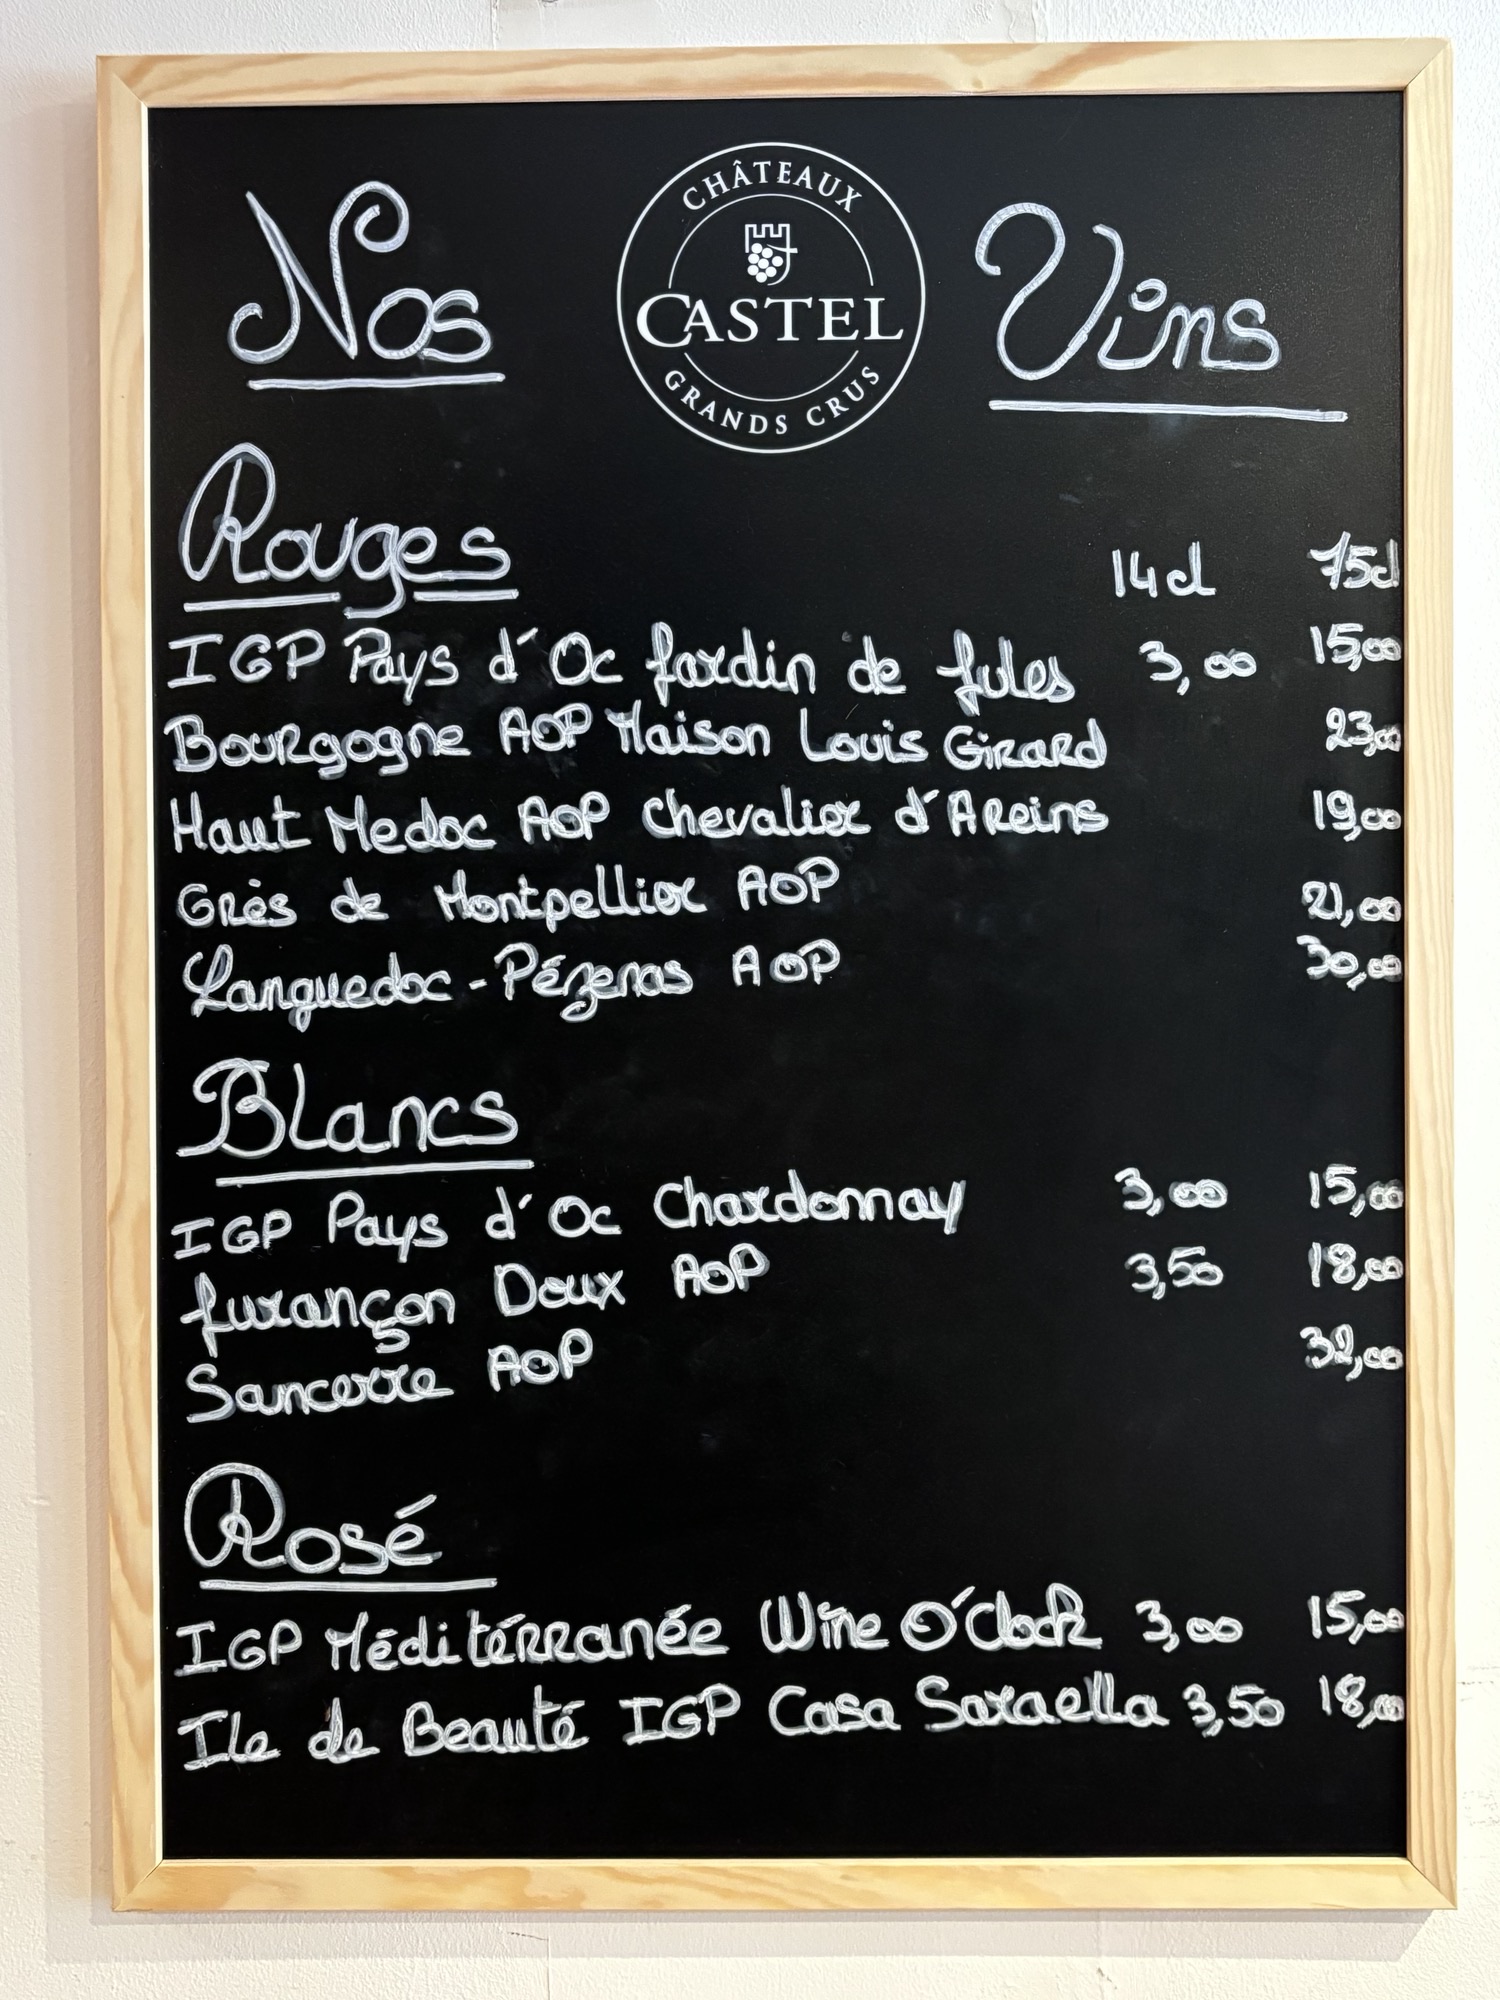 Nos
CHÂTEAUX
CASTEL
GRANDS CRUS
Vins
Rouges
14cl 75cl
IGP Pays d'Oc Jardin de Jules 3,00 15,00
Bourgogne AOP Maison Louis Girard 23,00
Haut Medoc AOP Chevalier d'Areins 19,00
Grès de Montpellier AOP 21,00
Languedoc-Pézenas AOP 30,00
Blancs
IGP Pays d'Oc Chardonnay 3,00 15,00
Jurançon Doux AOP 3,50 18,00
Sancerre AOP 32,00
Rosé
IGP Méditérranée Wine O'Clock 3,00 15,00
Ile de Beauté IGP Casa Saraella 3,50 18,00